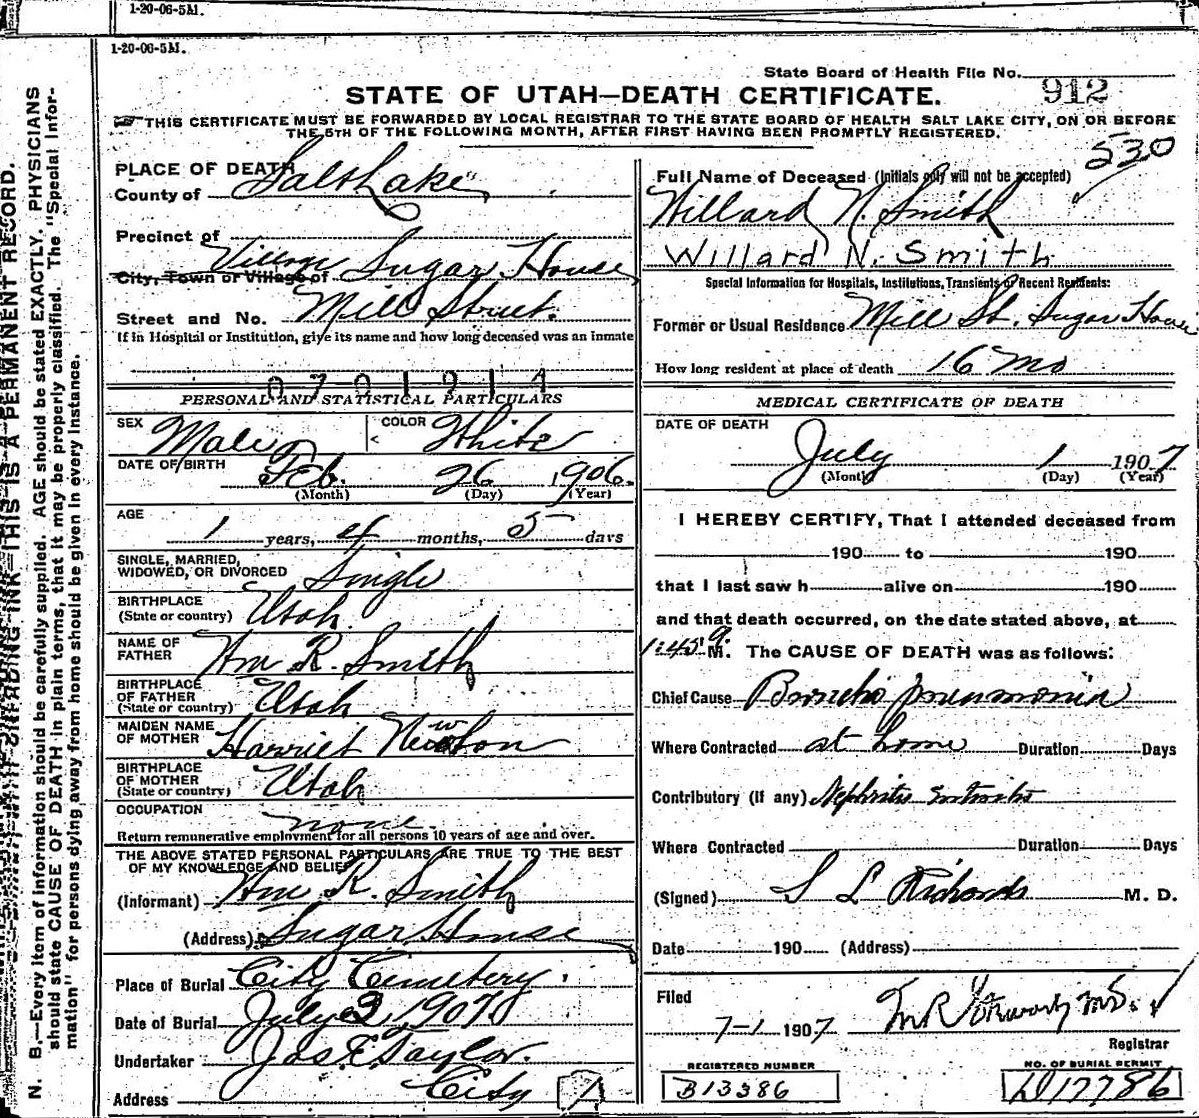 1-20-06-5M.
1-20-06-5M.
State Board of Health File No. 912
STATE OF UTAH—DEATH CERTIFICATE.
THIS CERTIFICATE MUST BE FORWARDED BY LOCAL REGISTRAR TO THE STATE BOARD OF HEALTH SALT LAKE CITY, ON OR BEFORE
THE 5TH OF THE FOLLOWING MONTH, AFTER FIRST HAVING BEEN PROMPTLY REGISTERED.
530
N. B.—Every item of information should be carefully supplied. AGE should be stated EXACTLY. PHYSICIANS
should state CAUSE OF DEATH in plain terms, that it may be properly classified. The "Special Infor-
mation" for persons dying away from home should be given in every instance.
THIS IS A PERMANENT RECORD.
PLACE OF DEATH
County of Salt Lake
Precinct of
City, Town or Village of Village Sugar House
Street and No. Mill Street.
If in Hospital or Institution, give its name and how long deceased was an inmate
0701914
PERSONAL AND STATISTICAL PARTICULARS
SEX Male COLOR White
DATE OF BIRTH Feb. 26 1906.
(Month) (Day) (Year)
AGE
1 years, 4 months, 5 days
SINGLE, MARRIED,
WIDOWED, OR DIVORCED Single
BIRTHPLACE
(State or country) Utah
NAME OF
FATHER Wm R. Smith
BIRTHPLACE
OF FATHER
(State or country) Utah
MAIDEN NAME
OF MOTHER Harriet Newton
BIRTHPLACE
OF MOTHER
(State or country) Utah
OCCUPATION none
Return remunerative employment for all persons 10 years of age and over.
THE ABOVE STATED PERSONAL PARTICULARS ARE TRUE TO THE BEST
OF MY KNOWLEDGE AND BELIEF
(Informant) Wm R. Smith
(Address) Sugar House
Place of Burial City Cemetery.
Date of Burial July 3 1907
Undertaker Jos E. Taylor.
Address City 1
Full Name of Deceased (Initials only will not be accepted)
Willard N. Smith
Willard N. Smith
Special Information for Hospitals, Institutions, Transients or Recent Residents:
Former or Usual Residence Mill St. Sugar House
How long resident at place of death 16 Mo
MEDICAL CERTIFICATE OF DEATH
DATE OF DEATH
July 1 1907
(Month) (Day) (Year)
I HEREBY CERTIFY, That I attended deceased from
190 to 190
that I last saw h alive on 190
and that death occurred, on the date stated above, at
1:45 a. M. The CAUSE OF DEATH was as follows:
Chief Cause Broncho pneumonia
Where Contracted at home Duration Days
Contributory (if any) Nephritis
Where Contracted Duration Days
(Signed) S L Richards M. D.
Date 190 (Address)
Filed
7-1 1907
Registrar
REGISTERED NUMBER
B13386
NO. OF BURIAL PERMIT
D17786